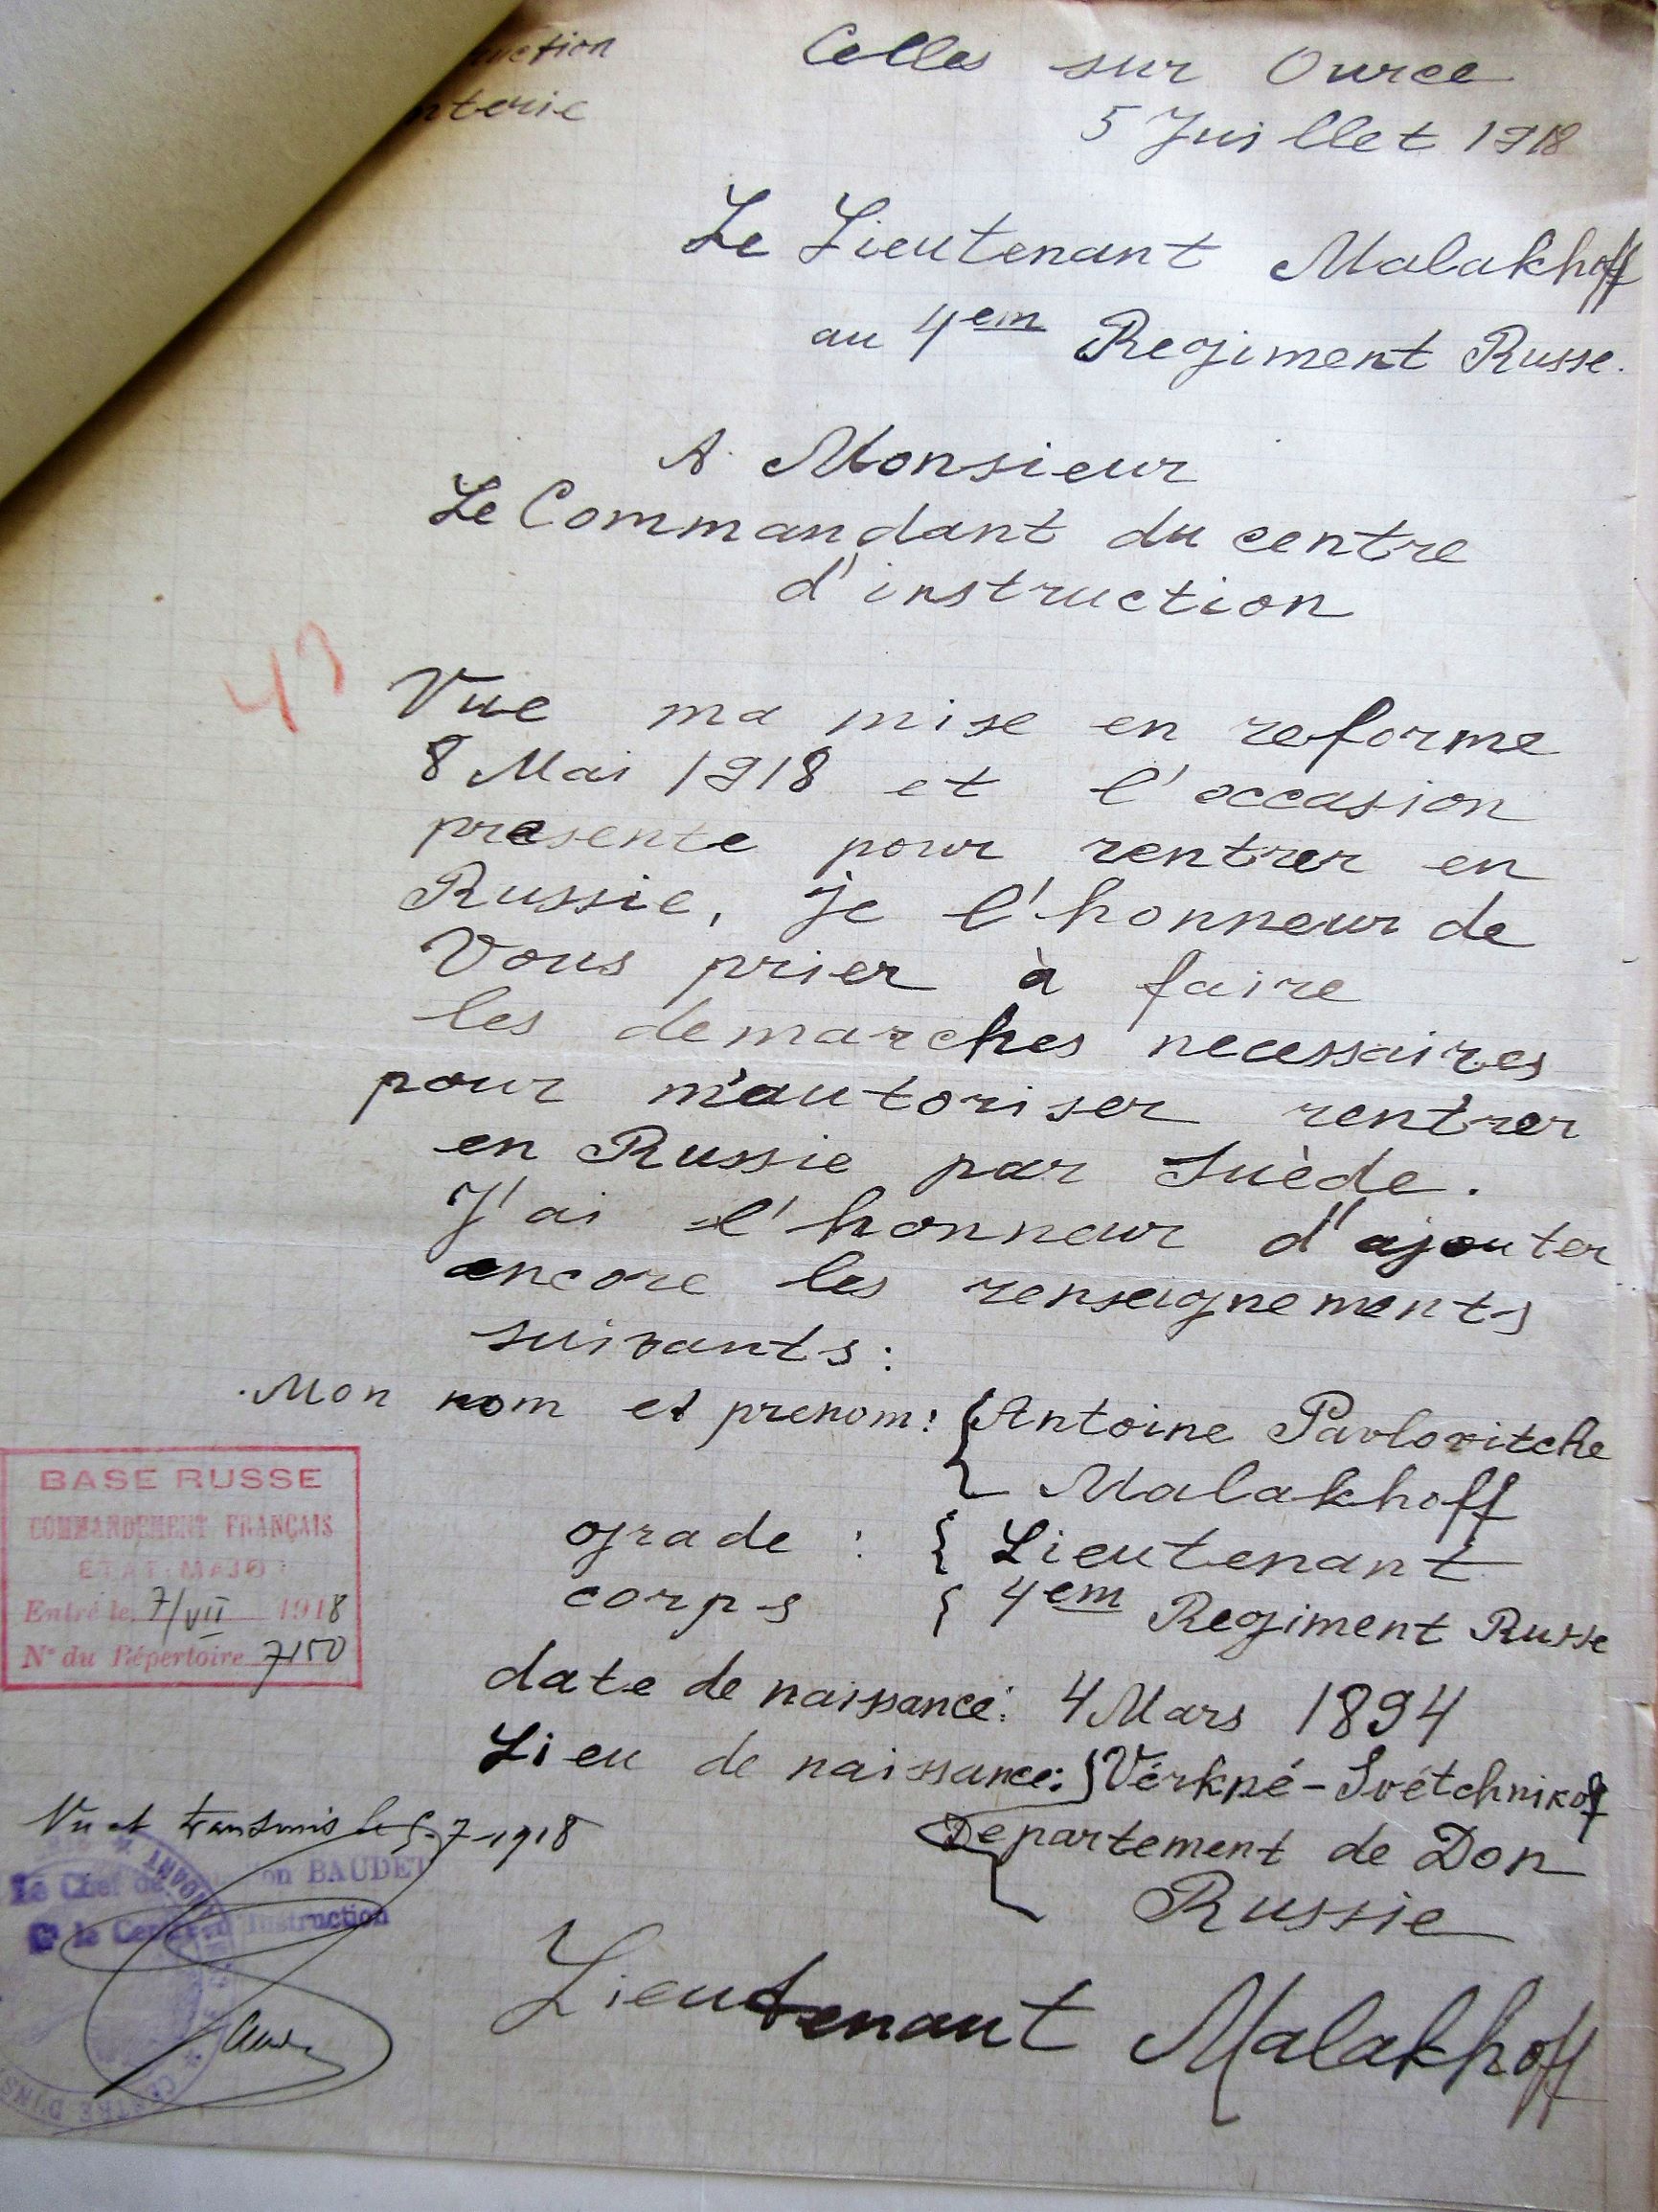 Celles sur Ource
5 Juillet 1918
Le Lieutenant Malakhoff
au 4em Regiment Russe.
A Monsieur
Le Commandant du centre
d'instruction
Vue ma mise en reforme
8 Mai 1918 et l'occasion
presente pour rentrer en
Russie, je l'honneur de
Vous prier à faire
les demarches necessaires
pour m'autoriser rentrer
en Russie par Suède.
J'ai l'honneur d'ajouter
encore les renseignements
suivants:
Mon nom et prenom: Antoine Pavlovitche
Malakhoff
grade : Lieutenant
corps 4em Regiment Russe
date de naissance: 4 Mars 1894
Lieu de naissance: Vérkné-Svétchnikof
Departement de Don
Russie
Lieutenant Malakhoff
BASE RUSSE
COMMANDEMENT FRANÇAIS
ETAT-MAJO
Entré le 7/VII 1918
N° du Répertoire 7150
Vu et transmis le 5-7-1918
Le Chef de on BAUDET
le Centre d'Instruction